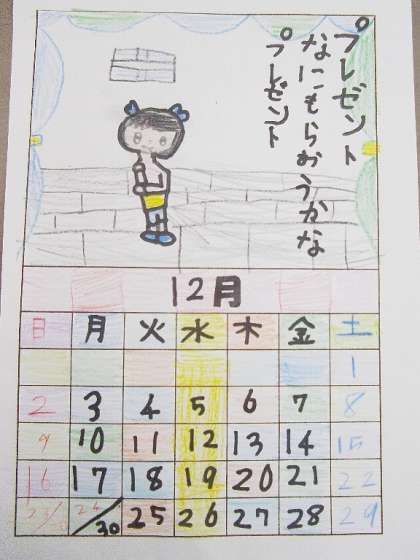 プレゼント
なにもらおうかな
プレゼント
12月
日 月 火 水 木 金 土
1
2 3 4 5 6 7 8
9 10 11 12 13 14 15
16 17 18 19 20 21 22
23/ 24/30 25 26 27 28 29